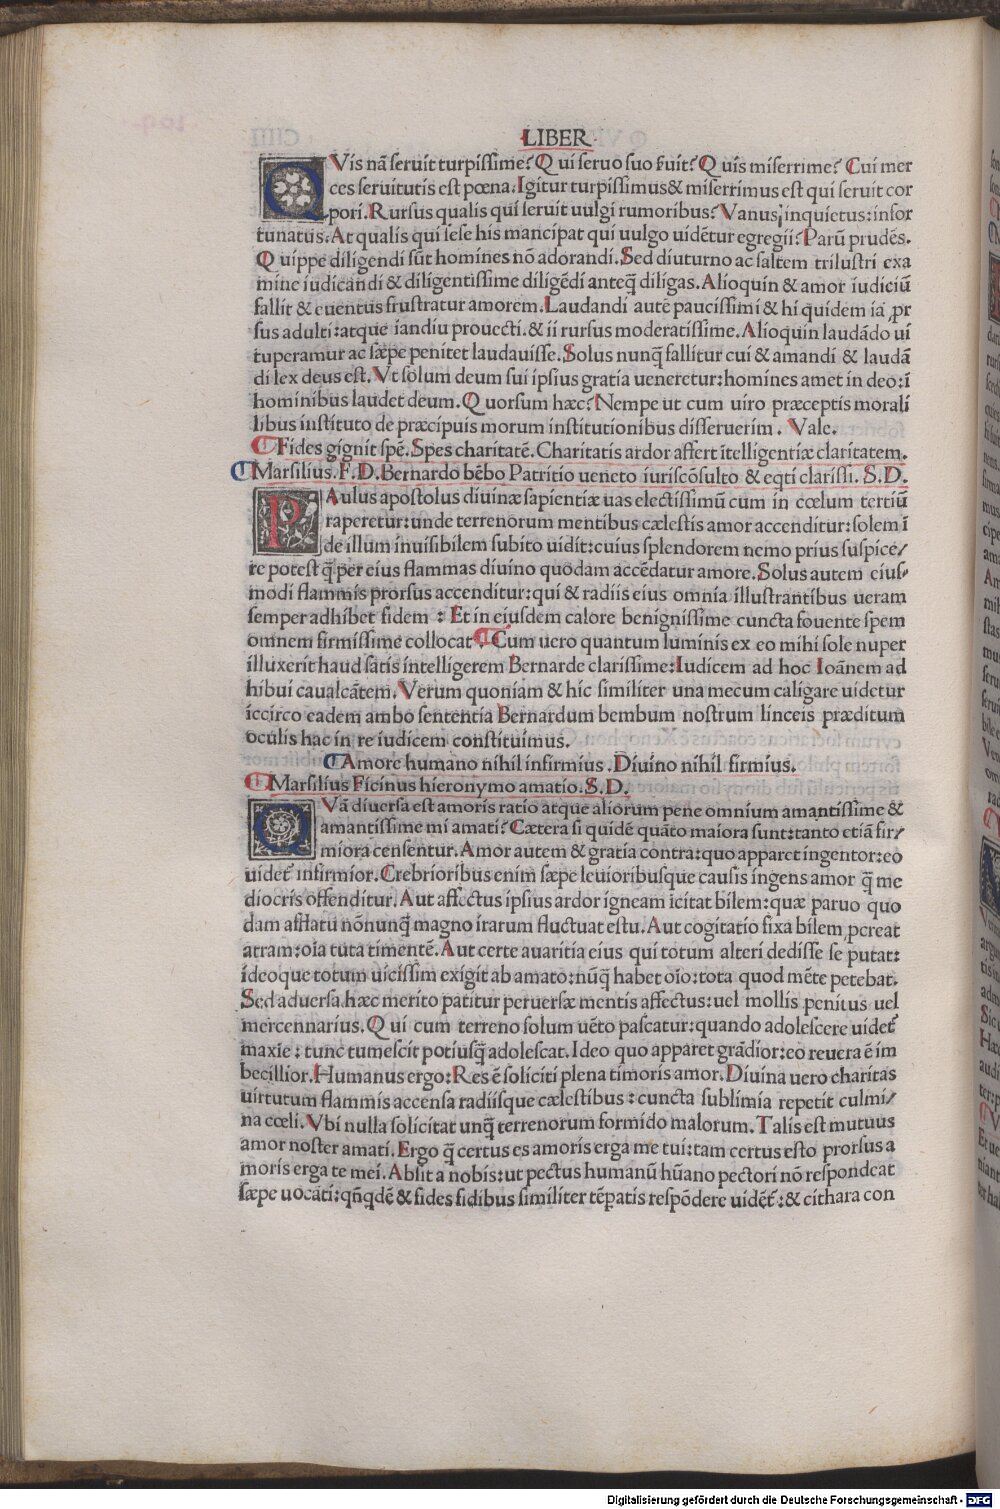 LIBER
QVis nã seruit turpissime? Qui seruo suo ꝼuit? Quis miserrime? Cui mer
ces seruitutis est pœna. Igitur turpissimus & miserrimus est qui seruit cor
pori. Rursus qualis qui seruit uulgi rumoribus? Vanus, inquietus: infor
tunatus. At qualis qui sese his mancipat qui uulgo uidẽtur egregii? Parũ prudẽs.
Quippe diligendi sũt homines nõ adorandi. Sed diuturno ac saltem trilustri exa
mine iudicandi & diligentissime diligẽdi anteq̃ diligas. Alioquin & amor iudiciũ
fallit & euentus frustratur amorem. Laudandi autẽ paucissimi & hi quidem iã ꝓr
sus adulti: atque iandiu prouecti. & ii rursus moderatissime. Alioquin laudãdo ui
tuperamur ac sæpe penitet laudauisse. Solus nunq̃ fallitur cui & amandi & laudã
di lex deus est. Vt solum deum sui ipsius gratia ueneretur: homines amet in deo: ĩ
hominibus laudet deum. Quorsum hæc? Nempe ut cum uiro præceptis morali
libus instituto de præcipuis morum institutionibus disseruerim. Vale.
Fides gignit spẽ. Spes charitatẽ. Charitatis ardor affert ĩtelligentiæ claritatem.
Marsilius. F. D. Bernardo bẽbo Patritio ueneto iuriscõsulto & eq̃ti clarissi. S. D.
PAulus apostolus diuinæ sapientiæ uas electissimũ cum in cœlum tertiũ
raperetur: unde terrenorum mentibus cælestis amor accenditur: solem ĩ
de illum inuisibilem subito uidit: cuius splendorem nemo prius suspice/
re potest q̃ per eius flammas diuino quodam accẽdatur amore. Solus autem eius/
modi flammis prorsus accenditur: qui & radiis eius omnia illustrantibus ueram
semper adhibet fidem: Et in eiusdem calore benignissime cuncta fouente spem
omnem firmissime collocat. Cum uero quantum luminis ex eo mihi sole nuper
illuxerit haud satis intelligerem Bernarde clarissime: Iudicem ad hoc Ioãnem ad
hibui caualcãtem. Verum quoniam & hic similiter una mecum caligare uidetur
iccirco eadem ambo sententia Bernardum bembum nostrum linceis præditum
oculis hac in re iudicem constituimus.
Amore humano nihil infirmius. Diuino nihil firmius.
Marsilius Ficinus hieronymo amatio. S. D.
QVã diuersa est amoris ratio atque aliorum pene omnium amantissime &
amantissime mi amati? Cætera si quidẽ quãto maiora sunt: tanto etiã fir/
miora censentur. Amor autem & gratia contra: quo apparet ingentor: eo
uidet̃ infirmior. Crebrioribus enim sæpe leuioribusque causis ingens amor q̃ me
diocris offenditur. Aut affectus ipsius ardor igneam icitat bilem: quæ paruo quo
dam afflatu nõnunq̃ magno irarum fluctuat estu. Aut cogitatio fixa bilem ꝓcreat
atram: oĩa tuta timentẽ. Aut certe auaritia eius qui totum alteri dedisse se putat:
ideoque totum uicissim exigit ab amato: nũq̃ habet oĩo: tota quod mẽte petebat.
Sed aduersa hæc merito patitur peruersæ mentis affectus: uel mollis penitus uel
mercennarius. Qui cum terreno solum uẽto pascatur: quando adolescere uidet̃
maxiẽ: tunc tumescit potiusq̃ adolescat. Ideo quo apparet grãdior: eo reuera ẽ im
becillior. Humanus ergo: Res ẽ soliciti plena timoris amor. Diuina uero charitas
uirtutum flammis accensa radiisque cælestibus: cuncta sublimia repetit culmi/
na cœli. Vbi nulla solicitat unq̃ terrenorum formido malorum. Talis est mutuus
amor noster amati. Ergo q̃ certus es amoris erga me tui: tam certus esto prorsus a
moris erga te mei. Absit a nobis: ut pectus humanũ hũano pectori nõ respondeat
sæpe uocati: qñq̃dẽ & fides fidibus similiter tẽperatis respõdere uidẽt̃: & cithara con
Digitalisierung gefördert durch die Deutsche Forschungsgemeinschaft - DFG